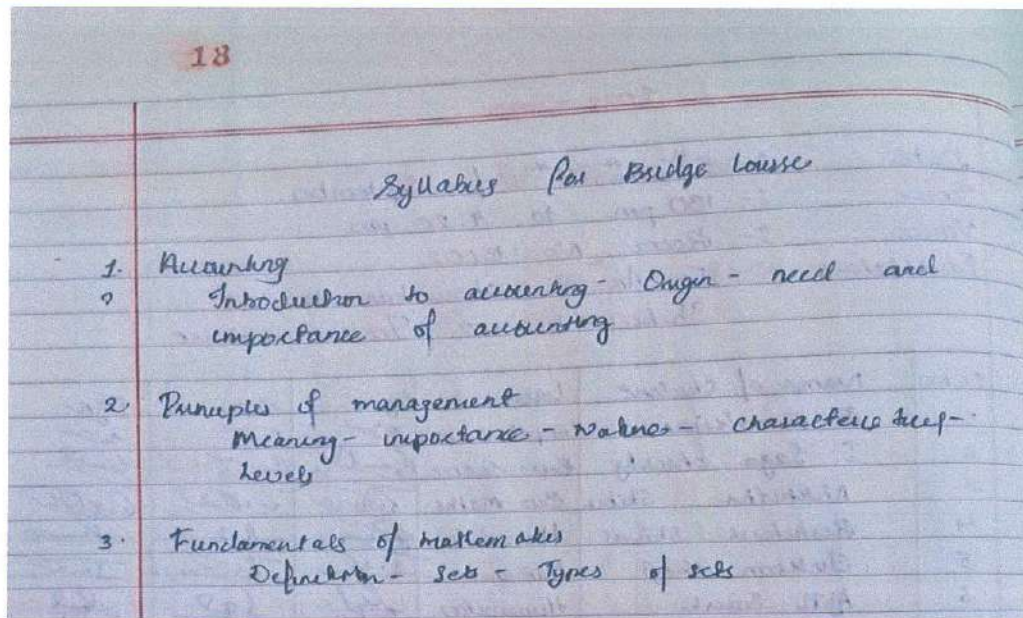 18
Syllabus for Bridge Course
1. Accounting
Introduction to accounting - Origin - need and
importance of accounting
2. Principles of management
Meaning - importance - Nature - characteristics -
Levels
3. Fundamentals of mathematics
Definition - Sets - Types of sets